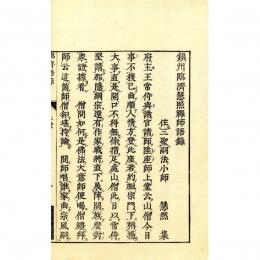 鎮州臨濟慧照禪師語錄
住三聖嗣法小師 慧然 集
府主王常侍與諸官請師陞座師上堂云山僧今日
事不獲已曲順人情方登此座若約祖宗門下稱揚
大事直是開口不得無你措足處山僧此日以常侍
堅請那隱綱宗還有作家戰將直下展陣開旗麼對
衆證據看 僧問如何是佛法大意師便喝僧禮拜
師云這箇師僧却堪持論 問師唱誰家曲宗風嗣